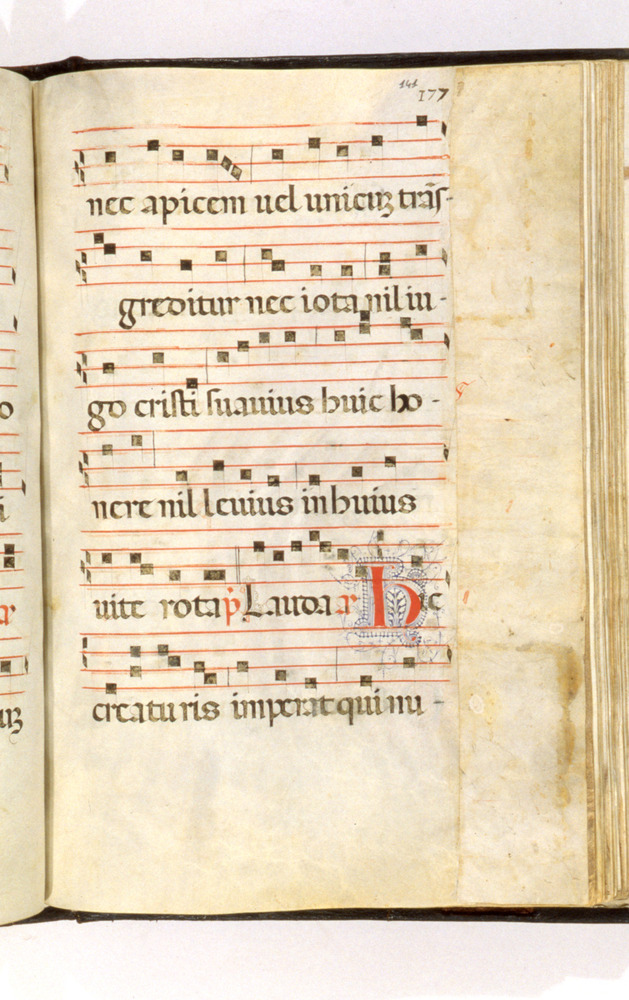 141
177
nec apicem uel unicuʒ trãſ-
greditur nec iota nil iu-
go criſti ſuauius huic ho-
nere nil leuius in huius
uite rota p̃ Lauda a Hec
creaturis imperat qui nu-